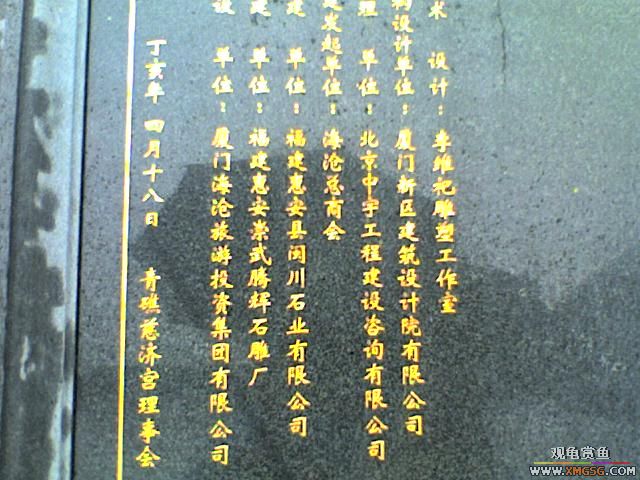 术 设计：李维祀雕塑工作室
设计单位：厦门新区建筑设计院有限公司
理 单位：北京中宇工程建设咨询有限公司
建发起单位：海沧总商会
建 单位：福建惠安县闽川石业有限公司
建 单位：福建惠安崇武腾辉石雕厂
设 单位：厦门海沧旅游投资集团有限公司
丁亥年四月十八日 青礁慈济宫理事会
观龟赏鱼
WWW.XMGSG.COM